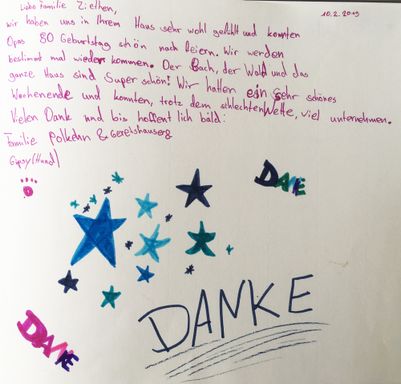 Liebe Familie Ziethen,
10.2.2019
wir haben uns in Ihrem Haus sehr wohl gefühlt und konnten
Opas 80 Geburtstag schön nach feiern. Wir werden
bestimmt mal wieder kommen. Der Bach, der Wald und das
ganze Haus sind Super schön! Wir hatten ein sehr schönes
Wochenende und konnten, trotz dem schlechten Wetter, viel unternehmen.
Vielen Dank und bis hoffentlich bald:
Familie &
Gipsy (Hund)
DANKE
DANKE
DANKE